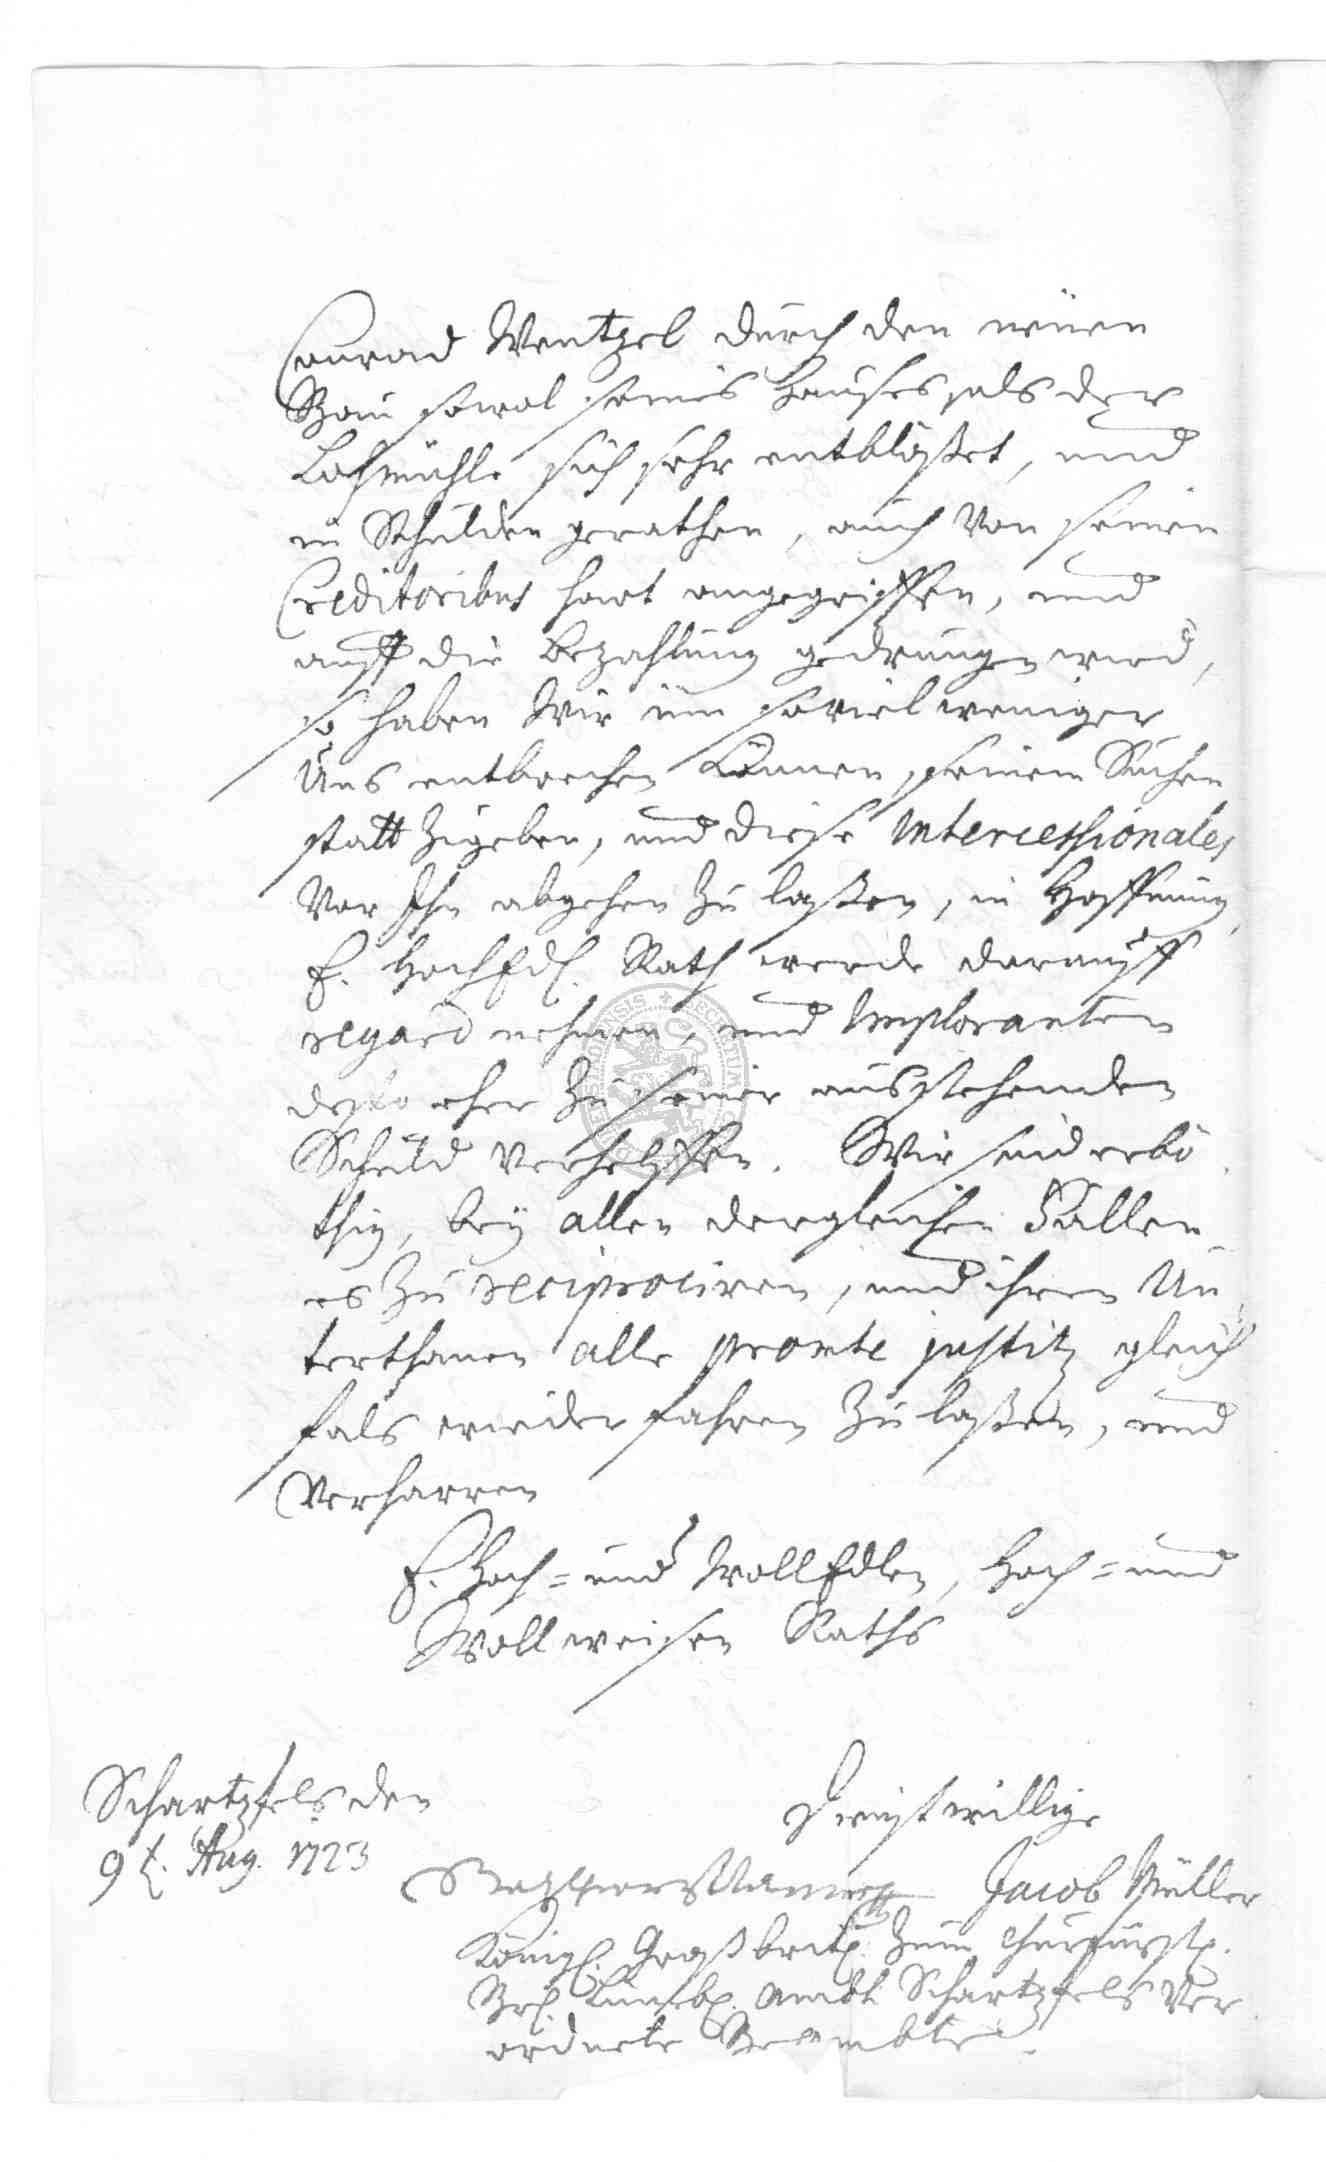 Conrad Wentzel durch den neüen
Bau sowol seines Hauses, als der
Lohmühle sich sehr entblößet, und
in Schulden gerathen, auch von seinen
Creditoribus hart angegriffen, und
auff die Bezahlung gedrungen wird,
so haben Wir üm soviel weniger
Uns entbrechen können, seinem Suchen
statt zugeben, und diese Intercessionales
vor Ihn abgehen zu laßen, in Hoffnung,
E. HochEdl. Rath werde darauff
regard nehmen, und Imploranten
desto eher zu seiner ausstehenden
Schuld verhelffen. Wir sind erbö
thig, bey allen dergleichen Fällen
es zu reciprociren, und ihren Un
terthanen alle promte justitz gleich
fals wiederfahren zu laßen, und
verharren
E. Hoch- und WollEdlen, Hoch- und
Wollweisen Raths
Schartzfels den
9t. Aug. 1723
Dienstwillige
Jacob Müller
Königl. Großbrit. Zum Churfürstl.
Br. Lüneb. Ambt Schartzfels Ver
ordnete Beambte.